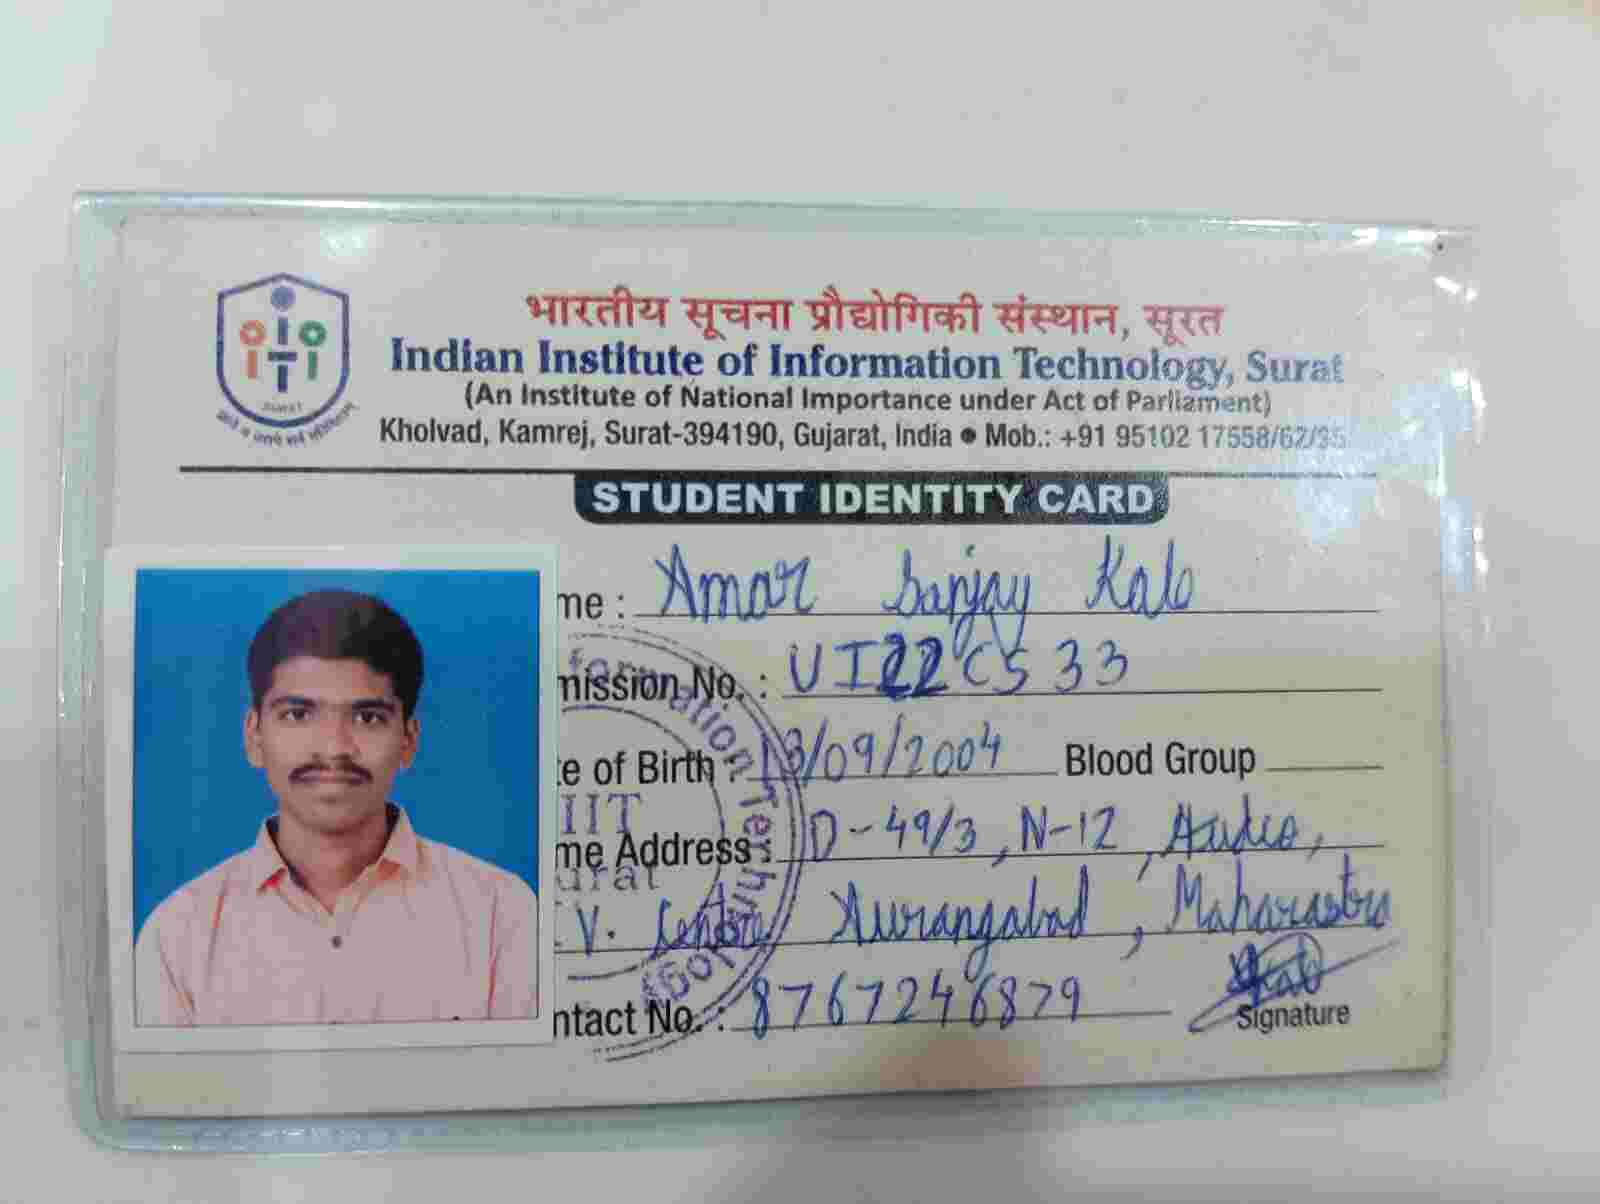 भारतीय सूचना प्रौद्योगिकी संस्थान, सूरत
Indian Institute of Information Technology, Surat
(An Institute of National Importance under Act of Parliament)
Kholvad, Kamrej, Surat-394190, Gujarat, India ● Mob.: +91 95102 17558/62/95
SURAT
STUDENT IDENTITY CARD
me : Amar Sanjay Kale
mission No. : UI22CS33
te of Birth : 13/09/2004 Blood Group
me Address : D-49/3, N-12, Hudco,
T.V. Centre Aurangabad, Maharastra
ntact No. : 8767246879
Signature
formation Technology
IIIT
Surat